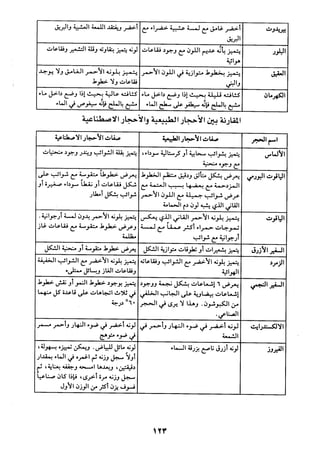 بيريدوت
أخضر غامق مع لمسة عشبية خضراء مع البريق
أخضر ويفتقد اللمعة العشبية والبريق
البلور
يتميز بأنه عديم اللون مع وجود فقاعات هوائية
لونه يتميز بنقاوة وقلة الشعر وفقاعات
العقيق
يتميز بخطوط متوازية في اللون الأحمر والبني
يتميز بلونه الأحمر الغامق ولا يوجد فقاعات ولا خطوط
الكهرمان
كثافته قليلة بحيث إذا وضع داخل ماء مشبع بالملح فإنه سيطفو على سطح الماء
كثافته عالية بحيث إذا وضع داخل ماء مشبع بالملح فإنه سيغوص في الماء
المقارنة بين الأحجار الطبيعية والأحجار الاصطناعية
اسم الحجر
صفات الأحجار الطبيعية
صفات الأحجار الاصطناعية
الألماس
يتميز بشوائب سحابية أو كرستالية سوداء، مع وجود منحنية
يتميز بقلة الشوائب ويندر وجود منحنيات
الياقوت البورمي
يعرض بشكل متألق ودقيق متظم الخطوط المزدحمة مع بعضها بسبب العتمة مع عرض شوائب جميلة مع اللون الأحمر القاني الذي يشبه لون دم الحمامة
يعرض خطوطاً متقوسة مع شوائب على شكل فقاعات أو نقطاً سوداء صغيرة أو شوائب بشكل أمطار
الياقوت
يتميز بلونه الأحمر القاني الذي يعكس تموجات حمراء أكثر عمقاً مع لمسة أرجوانية مع شوائب
يتميز بلونه الأحمر بدون لمسة أرجوانية. وعرض خطوط متقوسة مع فقاعات غاز مظلمة
السفير الأزرق
يتميز بشعيرات أو تطوقات متوازية الشكل
يعرض خطوط متقوسة أو منحنية الشكل
الزمرد
يتميز بلونه الأخضر مع الشوائب وفقاعاته الهوائية
يتميز بلونه الأخضر مع الشوائب الخفيفة وفقاعات الغاز وبسائل ممتلىء
السفير النجمي
يعرض ٦ إشعاعات بشكل نجمة ووجود إشعاعات بيضاوية على الجانب الخلفي من الكبوشون. وهذا لا يرى في الحجر الصناعي.
يتميز بوجود خطوط النمو أو نقش خطوط في ثلاث اتجاهات على قاعدة كل منهما ٦٠ درجة
الالكسندرايت
لونه أخضر في ضوء النهار وأحمر في الشمعة
لونه أخضر في ضوء النهار وأحمر مسمر في ضوء متوهج
الفيروز
لونه أزرق ناصع بزرقة السماء
لونه مائل للبياض. ويمكن تمييزه بسهولة، أولاً سجل وزنه ثم اغمره في الماء بمقدار دقيقتين، وبعدها امسحه وجففه بعناية، ثم سجل وزنه مرة أخرى، فإذا كان صناعياً فسوف يزن أكثر من الوزن الأول
١٢٣